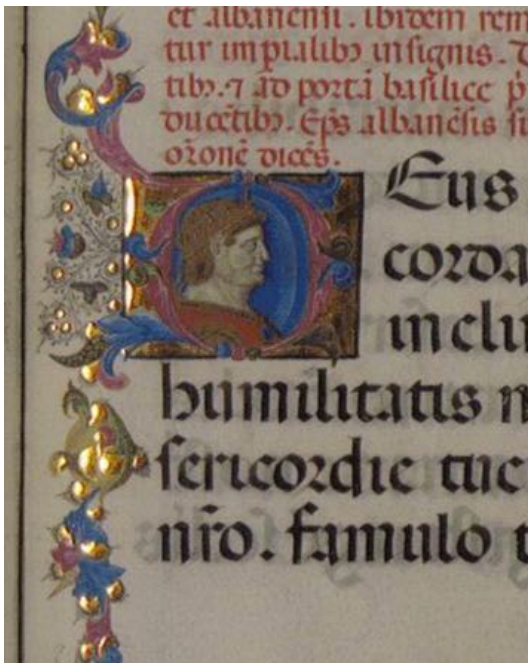 et albanensi. ibidem rem
tur impialibȝ insignis. D
tibȝ. ⁊ ad portā basilice p̄
ducētibȝ. Ep̄s albanēsis su
or̄onē dicēs.
Deus
corda
inclu
humilitatis n
sericordie tue
nr̄o. famulo t